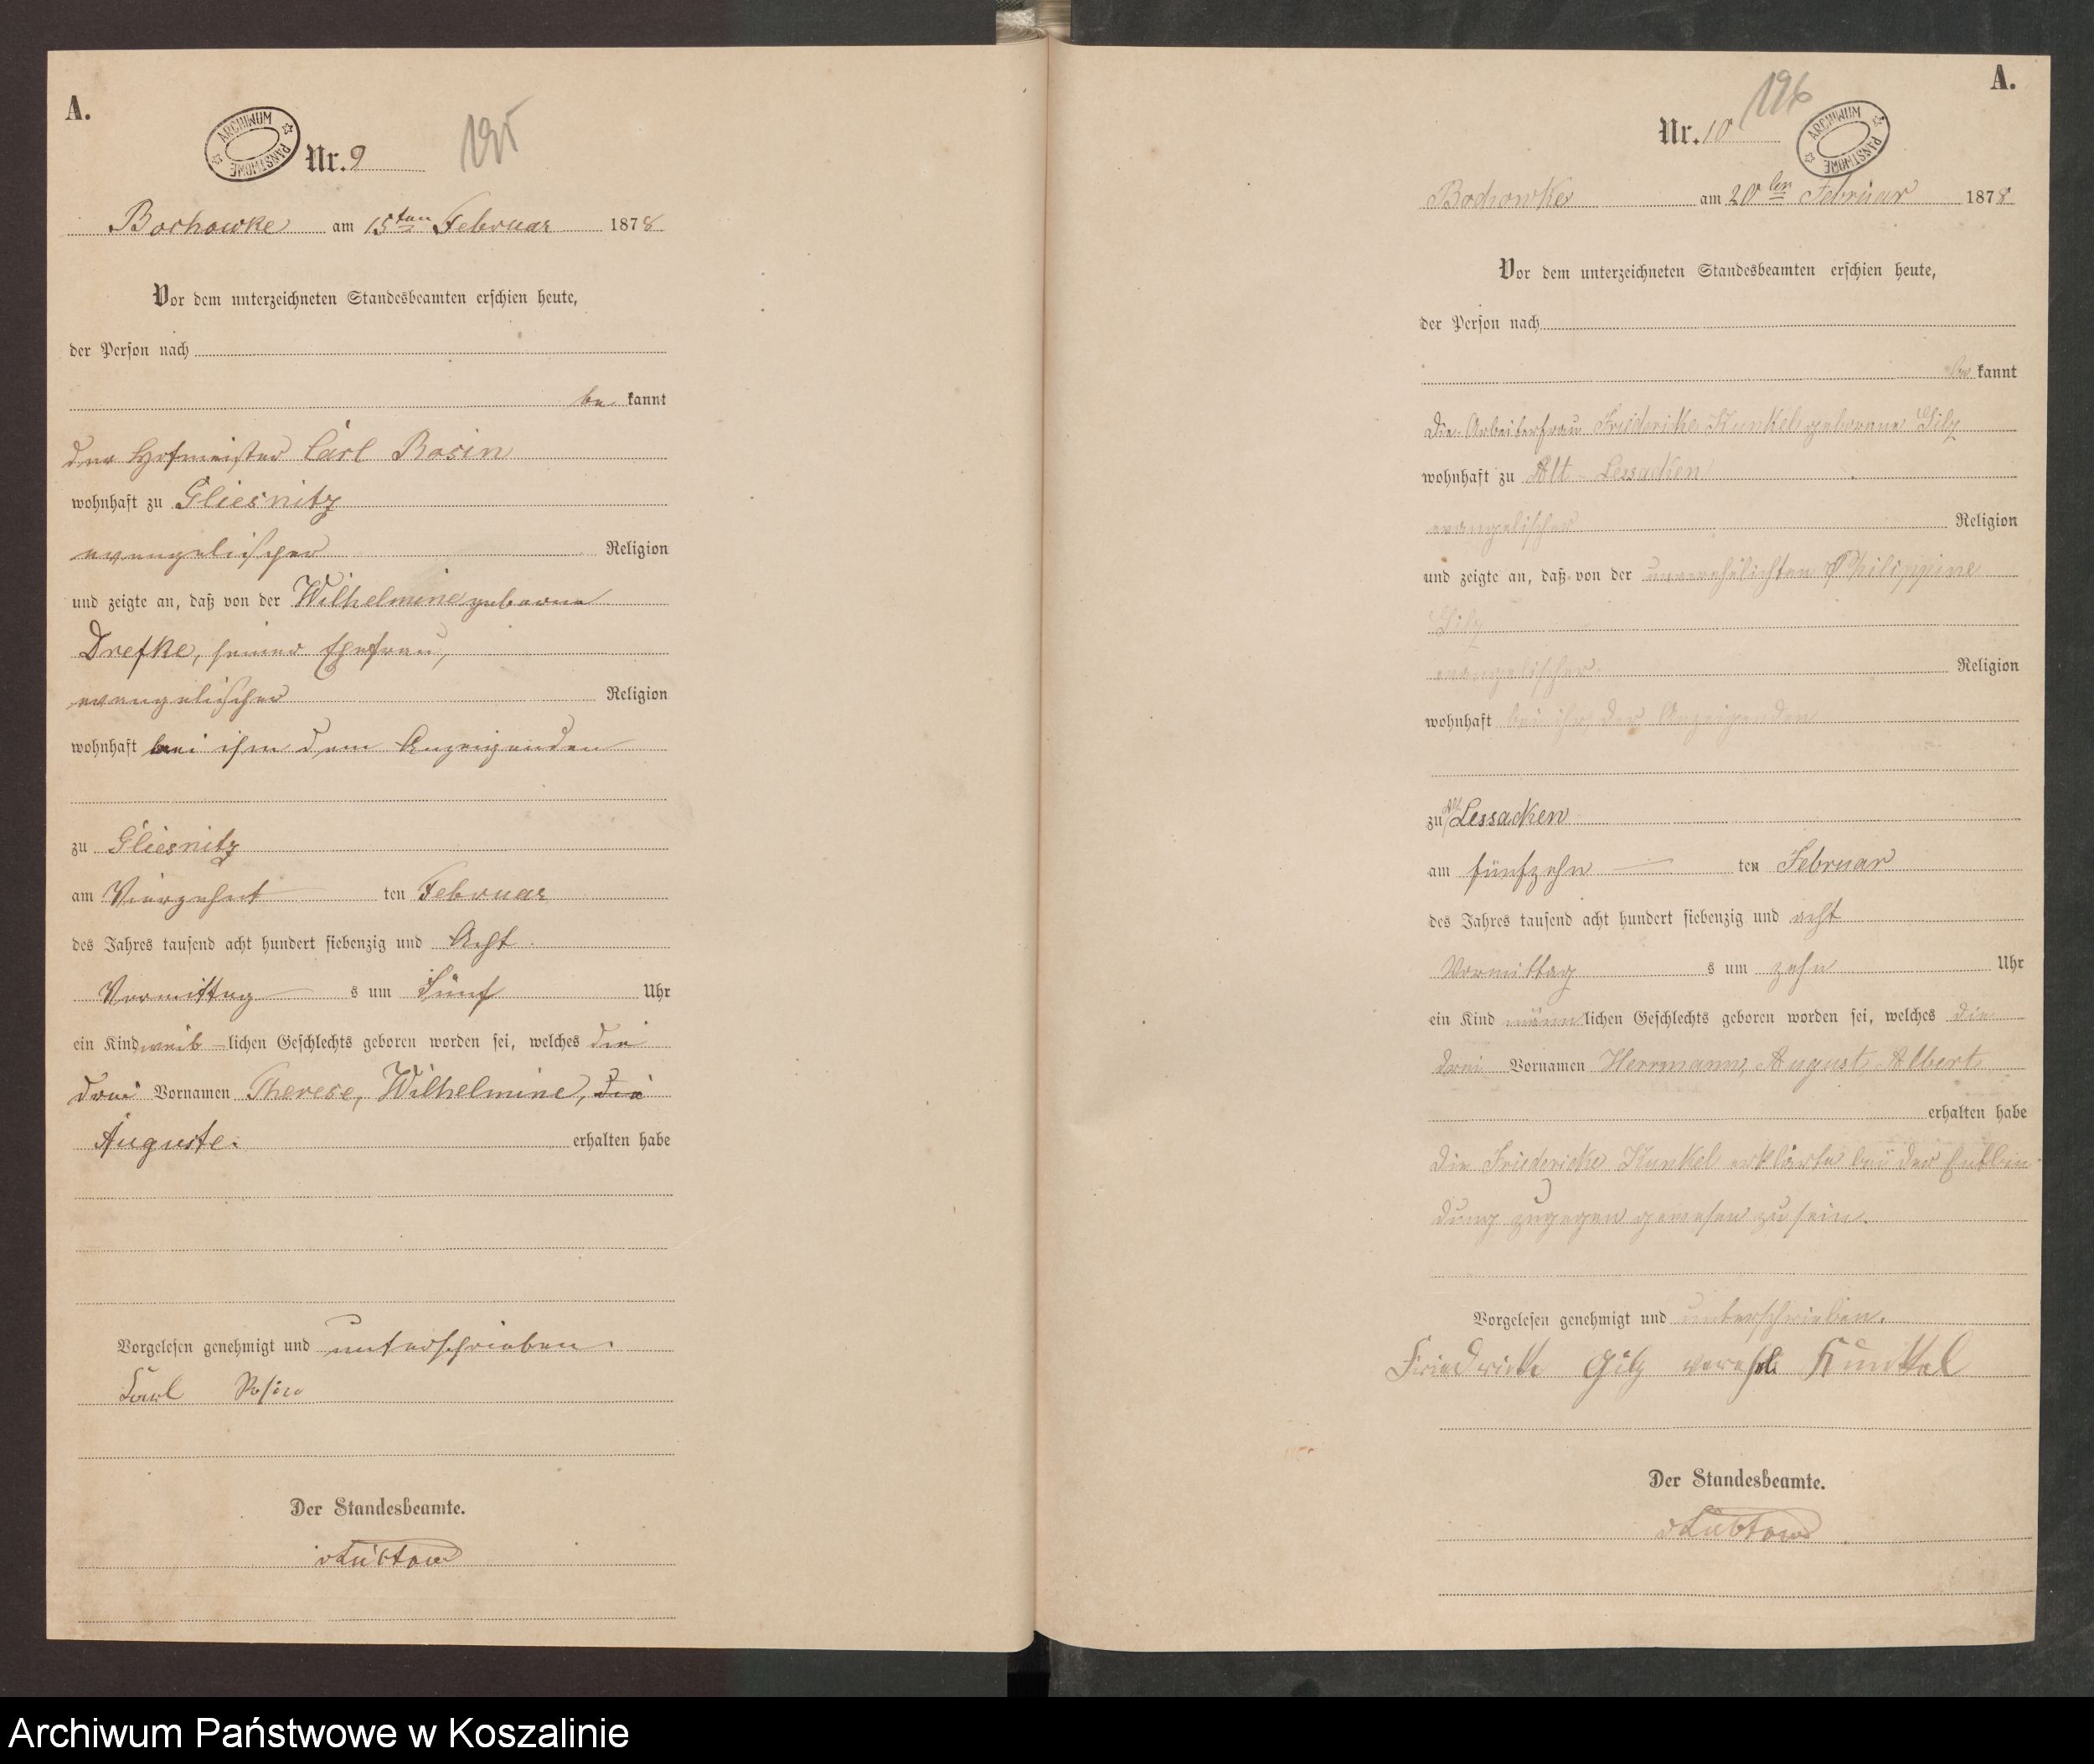 A.
ARCHIWUM PAŃSTWOWE
Nr. 9
195
Bochowke am 15ten Februar 1878
Vor dem unterzeichneten Standesbeamten erschien heute,
der Person nach
be kannt
der Hofmeister Carl Rosin
wohnhaft zu Gliesnitz
evangelischer Religion
und zeigte an, daß von der Wilhelmine geborne
Drefke, seiner Ehefrau,
evangelischer Religion
wohnhaft bei ihm dem Anzeigenden
zu Gliesnitz
am Vierzehnt ten Februar
des Jahres tausend acht hundert siebenzig und Acht
Vormittag s um Fünf Uhr
ein Kind weib-lichen Geschlechts geboren worden sei, welches die
drei Vornamen Therese, Wilhelmine, die
Auguste. erhalten habe
Vorgelesen genehmigt und unterschrieben.
Carl Rosin
Der Standesbeamte.
vLübtow
A.
196
Nr. 10
ARCHIWUM PAŃSTWOWE
Bochowke am 20ten Februar 1878
Vor dem unterzeichneten Standesbeamten erschien heute,
der Person nach
be kannt
die Arbeiterfrau Friedericke Kunkel geborene Gilz
wohnhaft zu Alt-Lessacken
evangelischer Religion
und zeigte an, daß von der unverehelichten Philippine
Gilz
evangelischer Religion
wohnhaft bei ihr der Anzeigenden
zu Alt Lessacken
am fünfzehn ten Februar
des Jahres tausend acht hundert siebenzig und acht
Vormittag s um zehn Uhr
ein Kind männlichen Geschlechts geboren worden sei, welches die
drei Vornamen Herrmann, August Albert
erhalten habe
die Friedericke Kunkel erklärte bei der Entbin
dung zugegen gewesen zu sein.
Vorgelesen genehmigt und unterschrieben.
Friedricke Gilz verehl Kunkel
Der Standesbeamte.
vLübtow
Archiwum Państwowe w Koszalinie